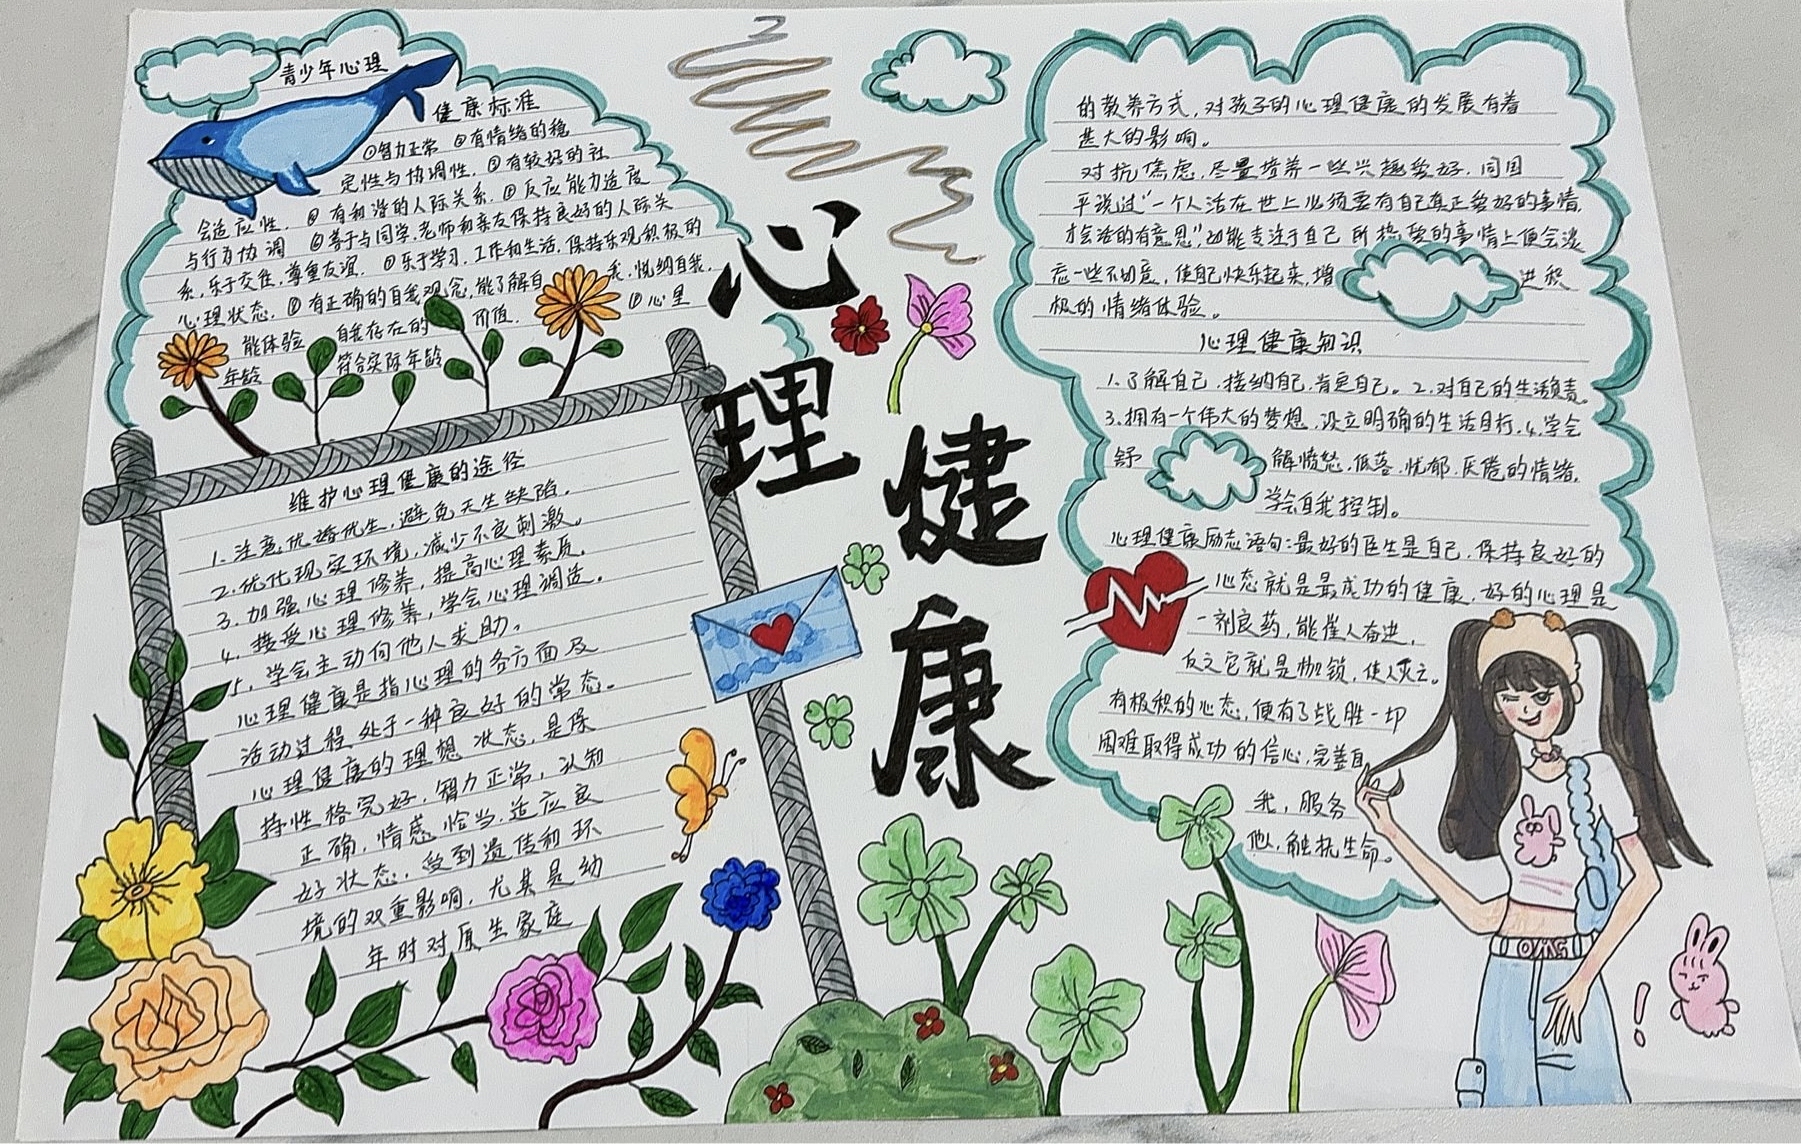 青少年心理
健康标准
①智力正常 ②有情绪的稳
定性与协调性. ③有较好的社
会适应性. ④有和谐的人际关系. ⑤反应能力适度
与行为协调 ⑥善于与同学,老师和亲友保持良好的人际关
系,乐于交往,尊重友谊. ⑦乐于学习,工作和生活,保持乐观积极的
心理状态. ⑧有正确的自我观念,能了解自我,悦纳自我.
能体验 自我存在的价值. ⑨心里
年龄 符合实际年龄
心理健康
维护心理健康的途径
1.注意优婚优生,避免天生缺陷.
2.优化现实环境,减少不良刺激。
3.加强心理修养,提高心理素质.
4.接受心理修养,学会心理调适.
5.学会主动向他人求助。
心理健康是指心理的各方面及
活动过程处于一种良好的常态.
心理健康的理想状态,是保
持性格完好,智力正常,认知
正确,情感恰当,适应良
好状态,受到遗传和环
境的双重影响,尤其是幼
年时对原生家庭
的教养方式,对孩子的心理健康的发展有着
甚大的影响。
对抗焦虑,尽量培养一些兴趣爱好,同国
平说过"一个人活在世上必须要有自己真正爱好的事情,
才会活的有意思",动能专注于自己所热爱的事情上便会淡
忘一些不切意,使自己快乐起来,增进积
极的情绪体验。
心理健康知识
1.了解自己,接纳自己,肯定自己。2.对自己的生活负责。
3.拥有一个伟大的梦想,设立明确的生活目标.4.学会
舒解愤怒,低落,忧郁,厌倦的情绪,
学会自我控制。
心理健康励志语句:最好的医生是自己,保持良好的
心态就是最成功的健康,好的心理是
一剂良药,能催人奋进,
反之它就是枷锁,使人灭亡。
有极积的心态,便有了战胜一切
困难取得成功的信心,完善自
我,服务
他,触抚生命。